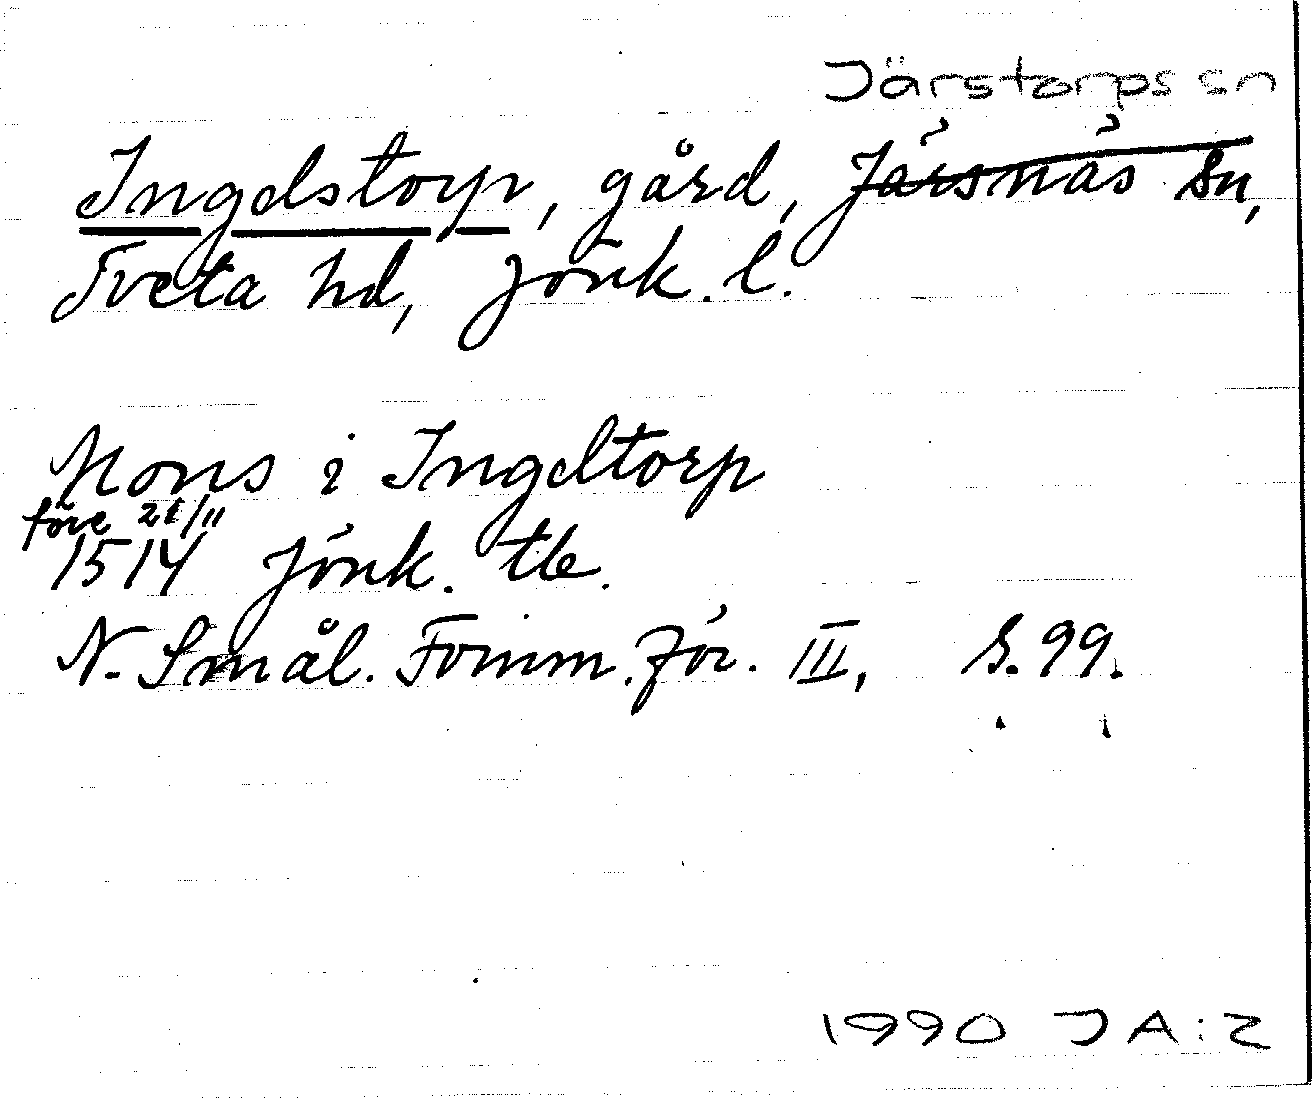 Järstorps sn
Ingelstorp, gård, Järsnäs sn,
Tveta hd, Jönk. l.
Mons i Ingeltorp
före 21/11
1514 Jönk. tb.
N. Smål. Fornm. för. III, S. 99.
1990 JA:2